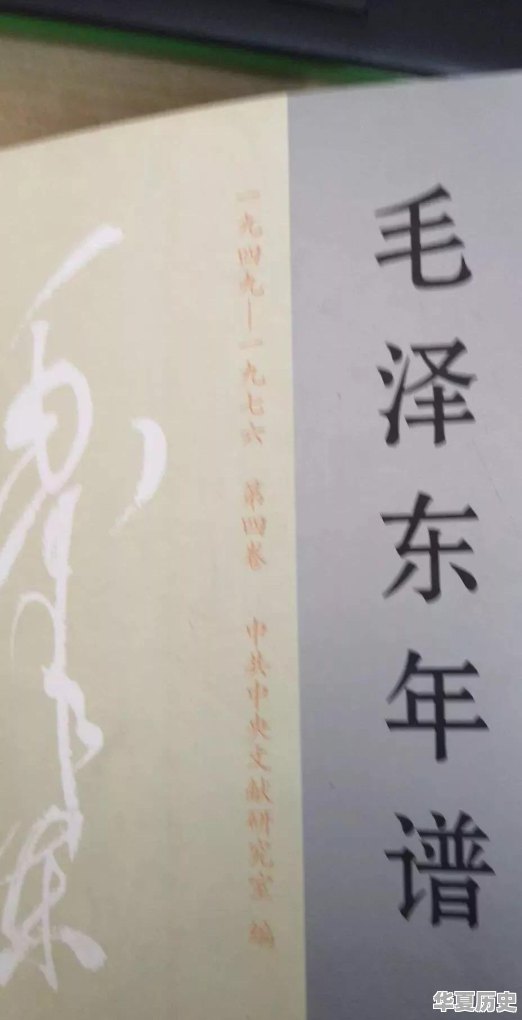 毛泽东年谱
一九四九—一九七六 第四卷 中共中央文献研究室 编
毛泽东
华夏历史